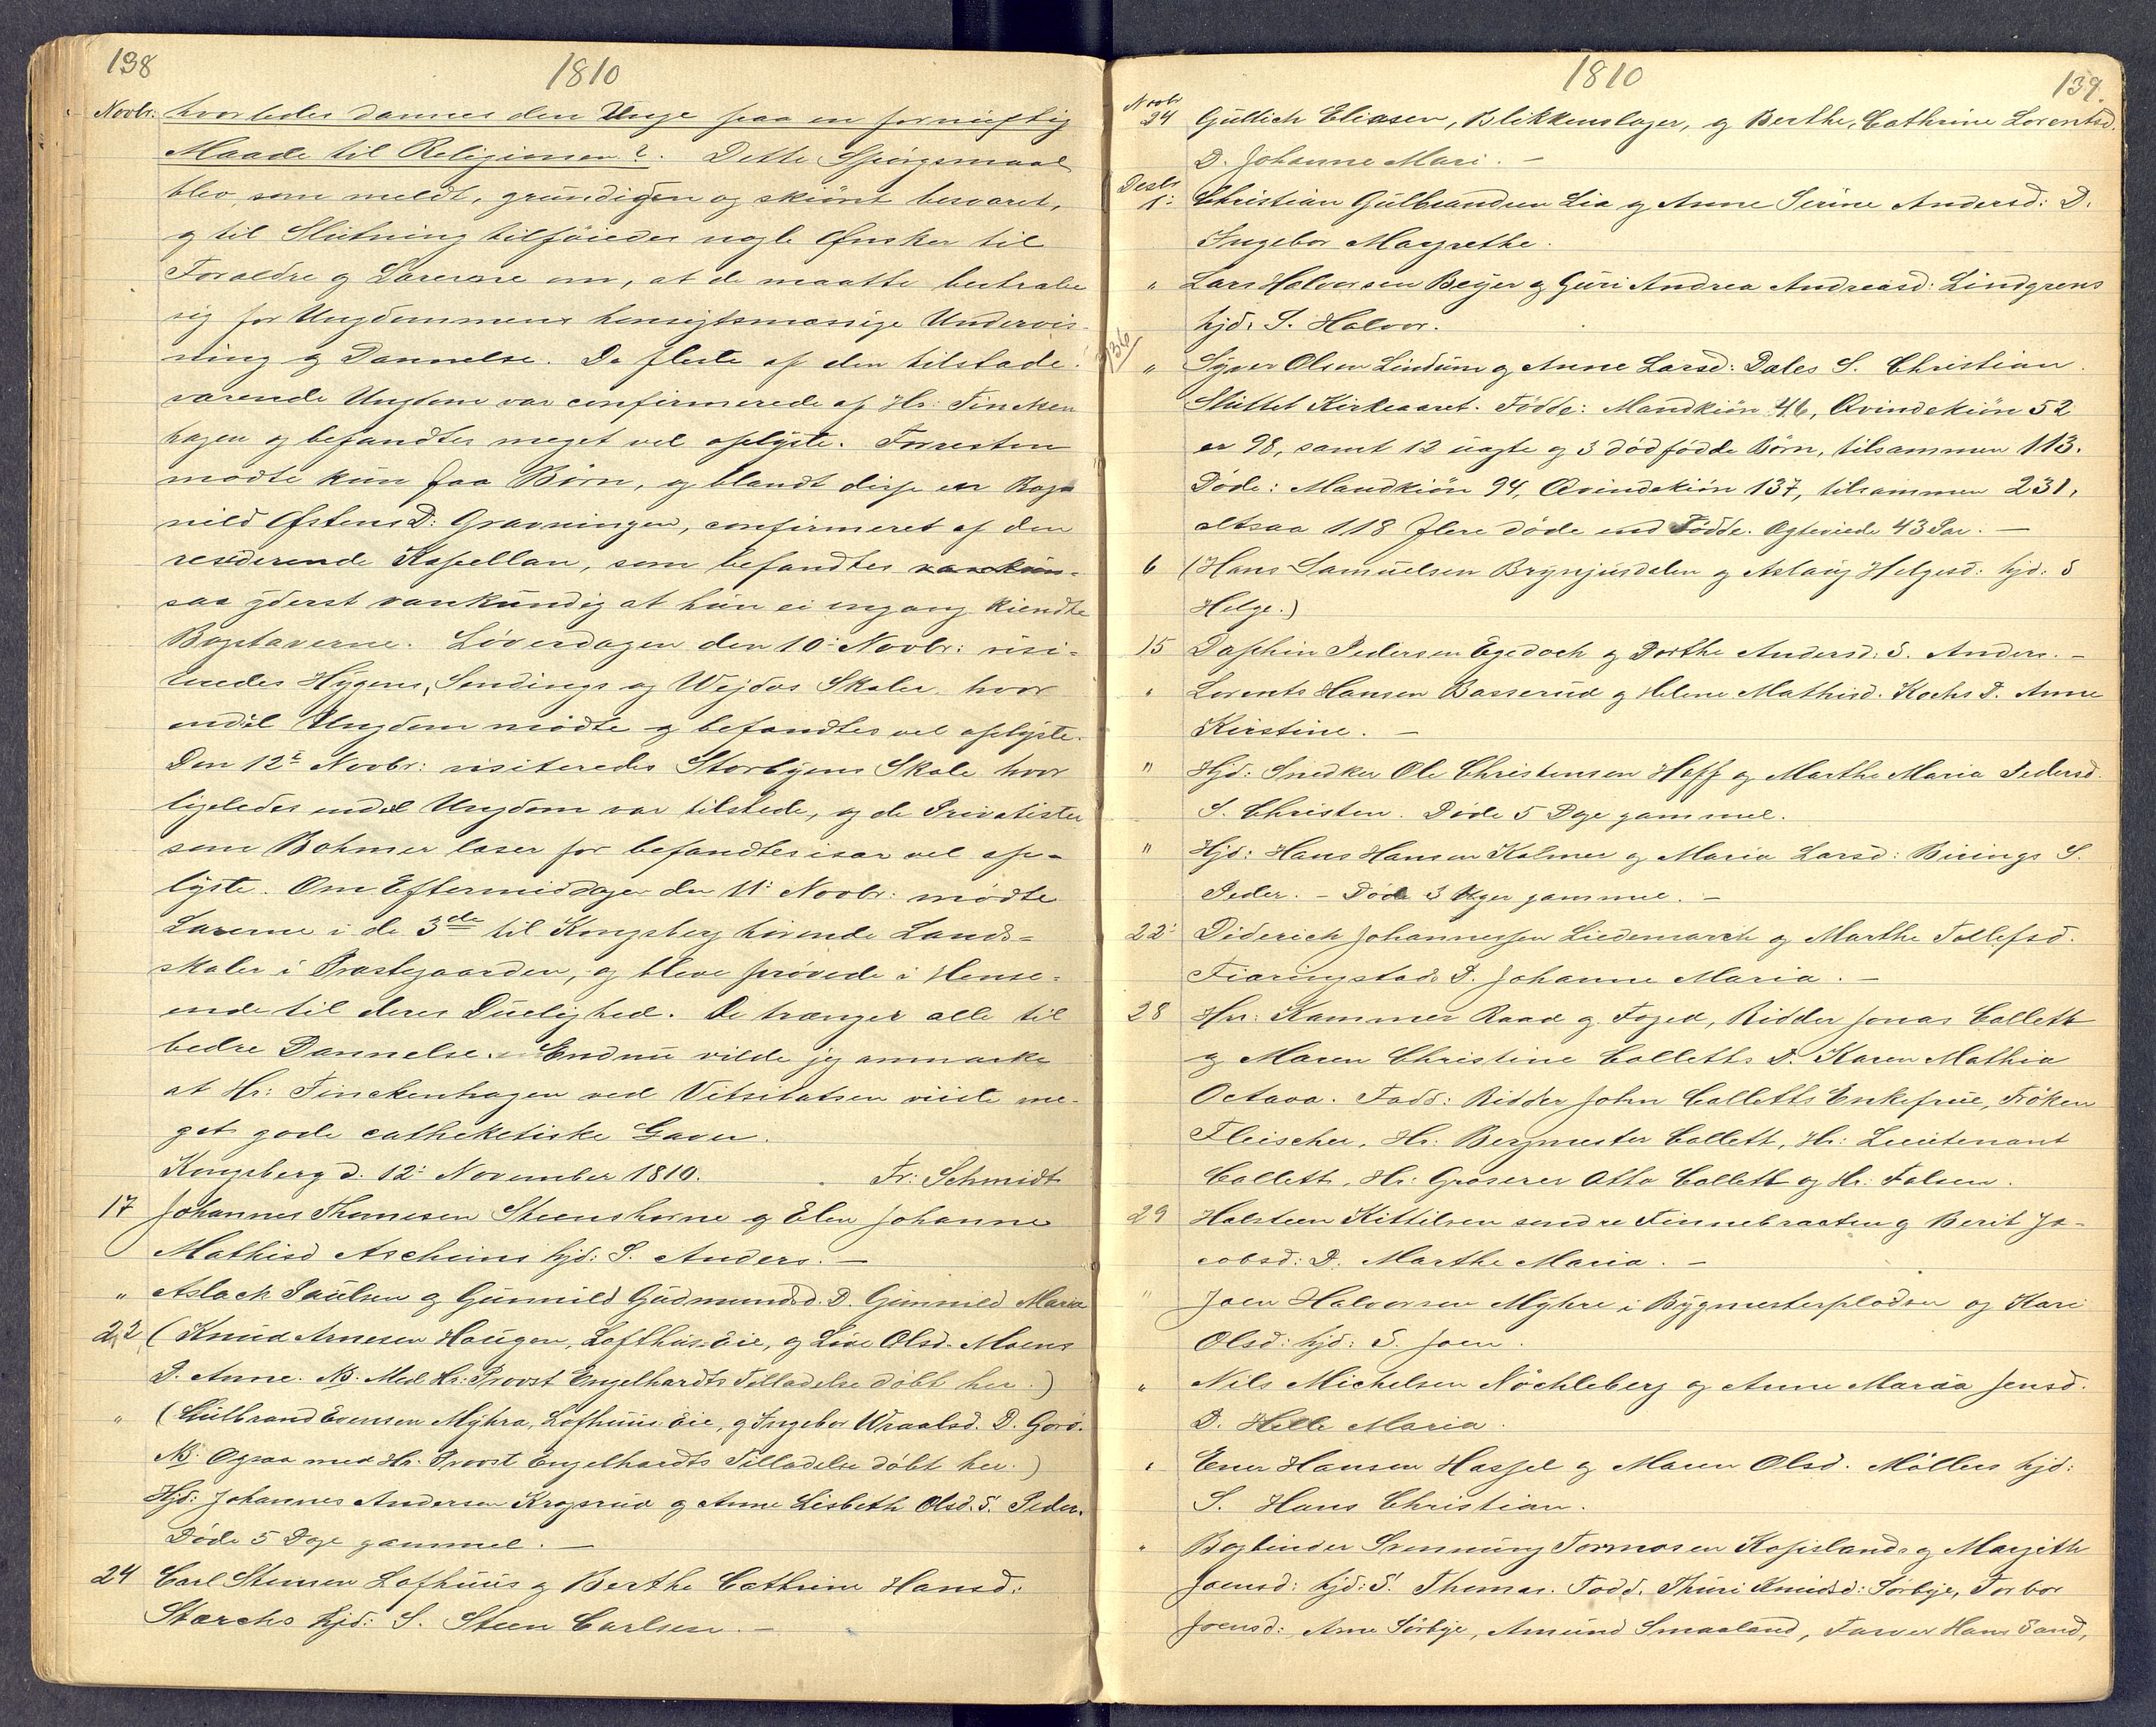 138
1810
Novbr: hvorledes dannes den Unge paa en fornuftig
Maade til Religionen?. Dette Spörgsmaal
blev, som meldt, grundigen og skiönt besvaret,
og til Slutning tilföiedes nogle Ønsker til
Foraeldre og Lærerne om, at de maatte bestræbe
sig for Ungdommens hensigtsmæssige Undervis-
ning og Dannelse. De fleste af den tilstæde-
værende Ungdom var confirmerede af Hr: Fincken
hagen og befandtes meget vel oplÿste. Forresten
mødte kun faa Börn, og blandt disse en Ragn
nild Østens D: Gravningen, confirmeret af den
residerende Kapellan, som befandtes
saa ÿderst vankundig at hun ei engang kiendte
Bogstaverne. Löverdagen den 10: Novbr: visi-
teredes Hÿgens, Sendings og Wejdas Skoler hvor
endel Ungdom mödte og befandtes vel oplÿste.
Den 12te Novbr: visiteredes Storbÿens Skole hvor
ligeledes endel Ungdom var tilstede, og de Privatister
som Bohmer læser for befandtes især vel op-
lÿste. Om Eftermiddagen den 11: Novbr: mödte
Lærerne i de 3de til Kongsberg hörende Lands-
skoler i Præstegaarden, og bleve prövede i Hense-
ende til deres Duelighed. De trænger alle til
bedre Dannelse. Endnu vilde jeg anmærke
at Hr: Finckenhagen ved Vitsitatsen viiste me-
get gode catheketiske Gaver.
Kongsberg d. 12: November 1810. Fr: Schmidt
17 Johannes Thomesen Steenshorne og Elen Johanne
Mathisd Ascheims hjd: S. Anders. —
" Aslach Paulsen og Gunnild Gudmundsd. D. Gunnild Maria
22 (Knud Arnesen Haugen, Lofthus Eie, og Live Olsd. Moens
D. Anne. NB. Med Hr: Provst Engelhardts Tilladelse döbt her.)
" (Gulbrand Evensen Mÿhra, Lofhuus Eie, og Ingebor Wraalsd. D. Goro.
NB. Ogsaa med Hr. Provst Engelhardts Tilladelse döbt her.)
Hjd: Johannes Andersen Kragsrud og Anne Lisbeth Olsd. S. Peder.
Döde 5 Dage gammel. —
24 Carl Steensen Lofhuus og Berthe Cathrine Hansd:
Starchs hjd: S. Steen Carlsen. —
1810
139.
Novbr
24 Gullich Eliasen, Blikkenslager, og Berthe Cathrine Lorentsd.
D. Johanne Mari. —
Desbr
1: Christian Gulbrandsen Lia og Anne Serine Andersd: D.
Ingebor Magrethe.
" Lars Halvorsen Beyer og Guri Andrea Andreasd: Lindgrens
hjd. S. Halvor.
136
" Syver Olsen Lindum og Anne Larsd: Dales S. Christian.
Sluttet Kirkeaaret. Födde: Mandkiön 46, Qvindekiön 52
er 98, samt 12 uægte og 3 dödfödde Börn, tilsammen 113.
Döde: Mandkiön 94, Qvindekiön 137, tilsammen 231,
altsaa 118 flere döde end Födde. Ægteviede 43 Par. —
6 (Hans Samuelsen Brynjusdalen og Aslaug Helgesd: hjd: S
Helge.)
15 Daphin Pedersen Egedoch og Dorthe Andersd. S. Anders. —
" Lorents Hansen Basserud og Helene Mathisd. Kochs D. Anne
Kirstine. —
" Hjd: Snedker Ole Christensen Hoff og Marthe Maria Pedersd.
S. Christen. Döde 5 Dage gammel.
" Hjd: Hans Hansen Kolmer og Maria Larsd: Birings S.
Peder. — Döde 3 Uger gammel. —
22: Diderich Johannessen Liedemarck og Marthe Tollefsd.
Fiæringstads D. Johanne Maria. —
28 Hr: Kammer Raad og Foged, Ridder Jonas Collett
og Maren Christine Colletts D. Karen Mathia
Octava. Fadd: Ridder John Colletts Enkefrue, Fröken
Fleischer, Hr: Bergmester Collett, Hr: Lieutenant
Collett, Hr: Groserer Otto Collett og Hr. Falsen.
29 Halsteen Kittilsen sendre Finnebraaten og Berit Ja-
cobsd: D. Marthe Maria. —
" Joen Halvorsen Mÿhre i Bÿgmesterpladsen og Kari
Olsd: hjd: S. Joen.
" Nils Michelsen Nöchleberg og Anne Maria Jensd.
D. Helle Maria.
" Ener Hansen Hassel og Maren Olsd. Möllers hjd:
S. Hans Christian.
" Bogbinder Svennung Tormosen Kopsland og Margith
Joensd: hjd: S. Thomas. Fadd. Thuri Knudsd: Sörbÿe, Torbor
Joensd: Arne Sörbÿe, Amund Smaaland, Farver Hans Sand,